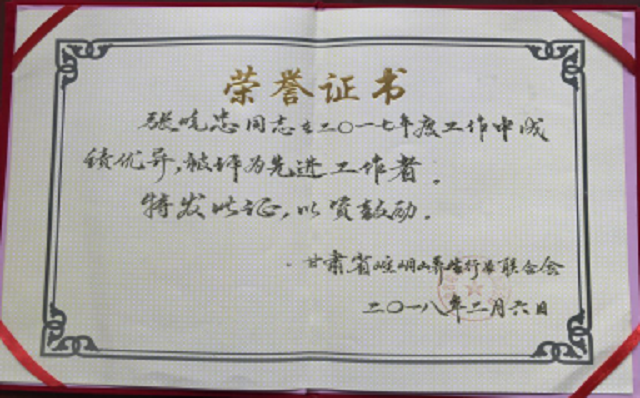 荣誉证书
张晓忠同志在二〇一七年度工作中成
绩优异，被评为先进工作者。
特发此证，以资鼓励。
甘肃省崆峒山养生行业联合会
二〇一八年二月六日